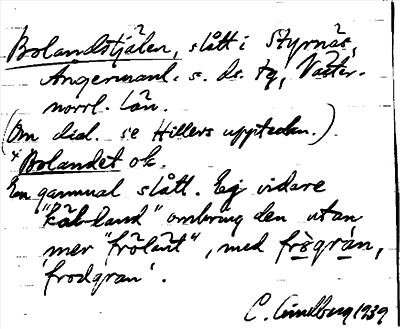 Bolandstjälen, slått i Styrnäs,
Ångermanl. s. ds. tg, Väster-
norrl. län.
(Om dial. se Hillers uppteckn.)
Bolandet ok.
En gammal slått. Ej vidare
land" omkring den utan
mer "frölänt", med frögrán,
'frodgran'.
C. Lindberg 1939